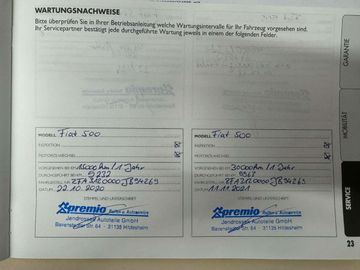 WARTUNGSNACHWEISE
Bitte überprüfen Sie in Ihrer Betriebsanleitung welche Wartungsintervalle für Ihr Fahrzeug vorgesehen sind.
Ihr Servicepartner bestätigt jede durchgeführte Wartung jeweils in einem der folgenden Felder.
MODELL Fiat 500
INSPEKTION
MOTORÖLWECHSEL
VORGESEHEN BEI KM 15000km/1 Jahr
DURCHGEFÜHRT BEI KM 9232
FAHRGESTELL NR. ZFA3120000JB94269
DATUM 22.10.2020
STEMPEL UND UNTERSCHRIFT
premio Reifen + Autoservice
Jendrossek Autoteile GmbH
Bavenstedter Str. 64 · 31135 Hildesheim
MODELL Fiat 500
INSPEKTION
MOTORÖLWECHSEL
VORGESEHEN BEI KM 30000km/1 Jahr
DURCHGEFÜHRT BEI KM
FAHRGESTELL NR. ZFA3120000JB94269
DATUM 11.11.2021
STEMPEL UND UNTERSCHRIFT
premio Reifen + Autoservice
Jendrossek Autoteile GmbH
Bavenstedter Str. 64 · 31135 Hildesheim
GARANTIE
MOBILITÄT
SERVICE
23